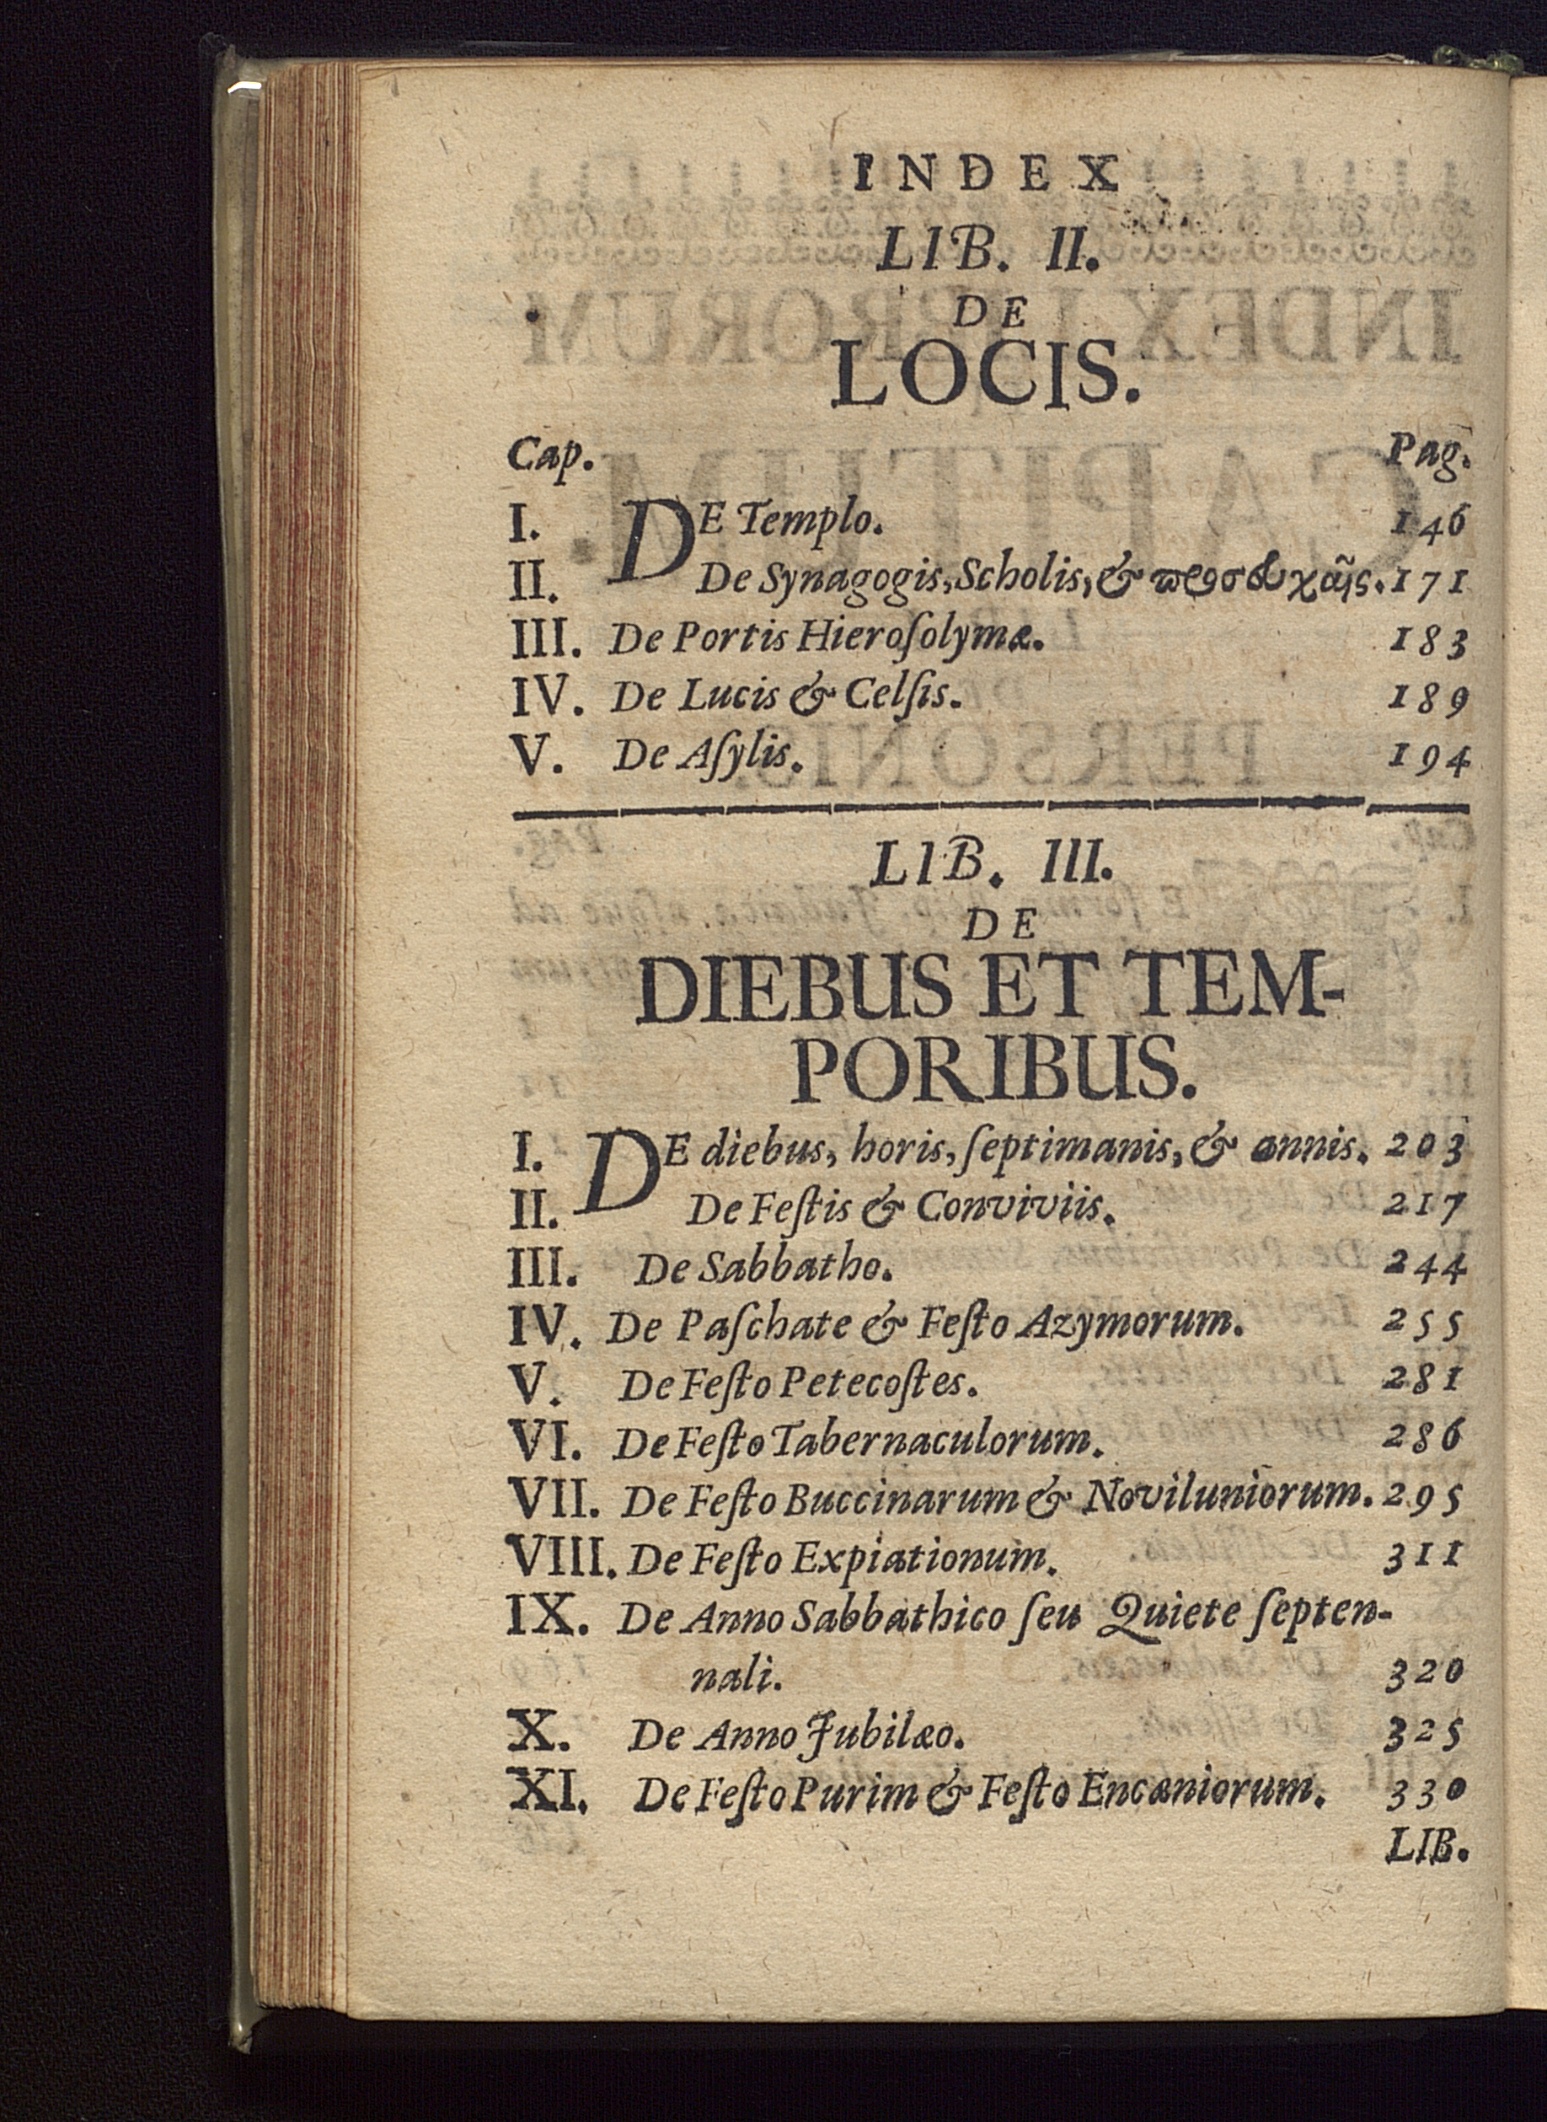 INDEX
LIB. II.
DE
LOCIS.
Cap. Pag.
I. DE Templo. 146
II. De Synagogis, Scholis, & προσευχαῖς. 171
III. De Portis Hieroſolymæ. 183
IV. De Lucis & Celſis. 189
V. De Aſylis. 194
LIB. III.
DE
DIEBUS ET TEM-
PORIBUS.
I. DE diebus, horis, ſeptimanis, & annis. 203
II. De Feſtis & Conviviis. 217
III. De Sabbatho. 244
IV. De Paſchate & Feſto Azymorum. 255
V. De Feſto Petecoſtes. 281
VI. De Feſto Tabernaculorum. 286
VII. De Feſto Buccinarum & Noviluniorum. 295
VIII. De Feſto Expiationum. 311
IX. De Anno Sabbathico ſeu Quiete ſepten-
nali. 320
X. De Anno Jubilæo. 325
XI. De Feſto Purim & Feſto Encæniorum. 330
LIB.